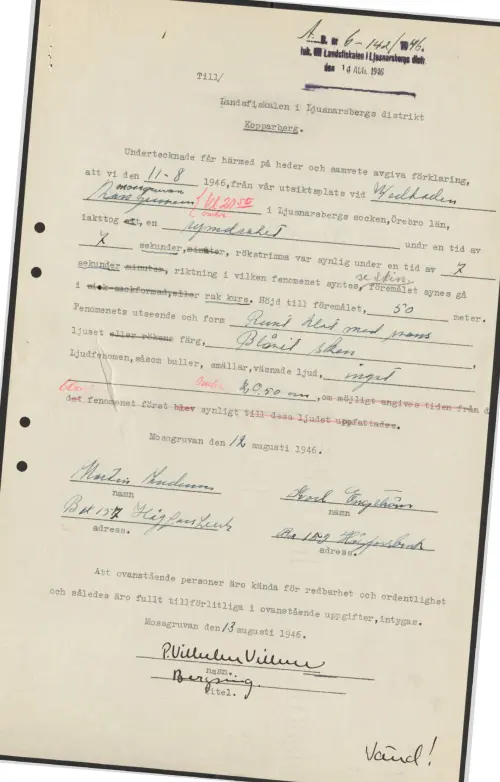 A. D. nr 6-142/1946.
Ink. till Landsfiskalen i Ljusnarsbergs distr.
den 14 AUG. 1946
Till/
Landsfiskalen i Ljusnarsbergs distrikt
Kopparberg.
Undertecknade får härmed på heder och samvete avgiva förklaring,
att vi den 11-8 1946, från vår utsiktsplats vid
mosagruvan kl 20.50 i Ljusnarsbergs socken, Örebro län,
iakttog en rymdraket undr en tid av
7 sekunder, minuter, rökstrimma var synlig under en tid av 7
sekunder minuter, riktning i vilken fenomenet syntes, föremålet synes gå
i sick-sackformad, eller rak kurs. Höjd till föremålet, 50 meter.
Fenomenets utseende och form Runt klot med svans
ljuset eller rökens färg, Blåvit sken,
Ljudfenomen, såsom buller, smällar, väsnade ljud, inget
20.50 em, om möjligt angives tiden från d
det fenomenet först blev synligt till dess ljudet uppfattades.
Mosagruvan den 12 augusti 1946.
Martin
namn
Box 157
adress.
Engström
namn
Box 159
adress.
Att ovanstående personer äro kända för redbarhet och ordentlighet
och således äro fullt tillförlitliga i ovanstående uppgifter, intygas.
Mosagruvan den 13 augusti 1946.
P. Vilhelm
namn.
Bergsing.
titel.
Vänd!